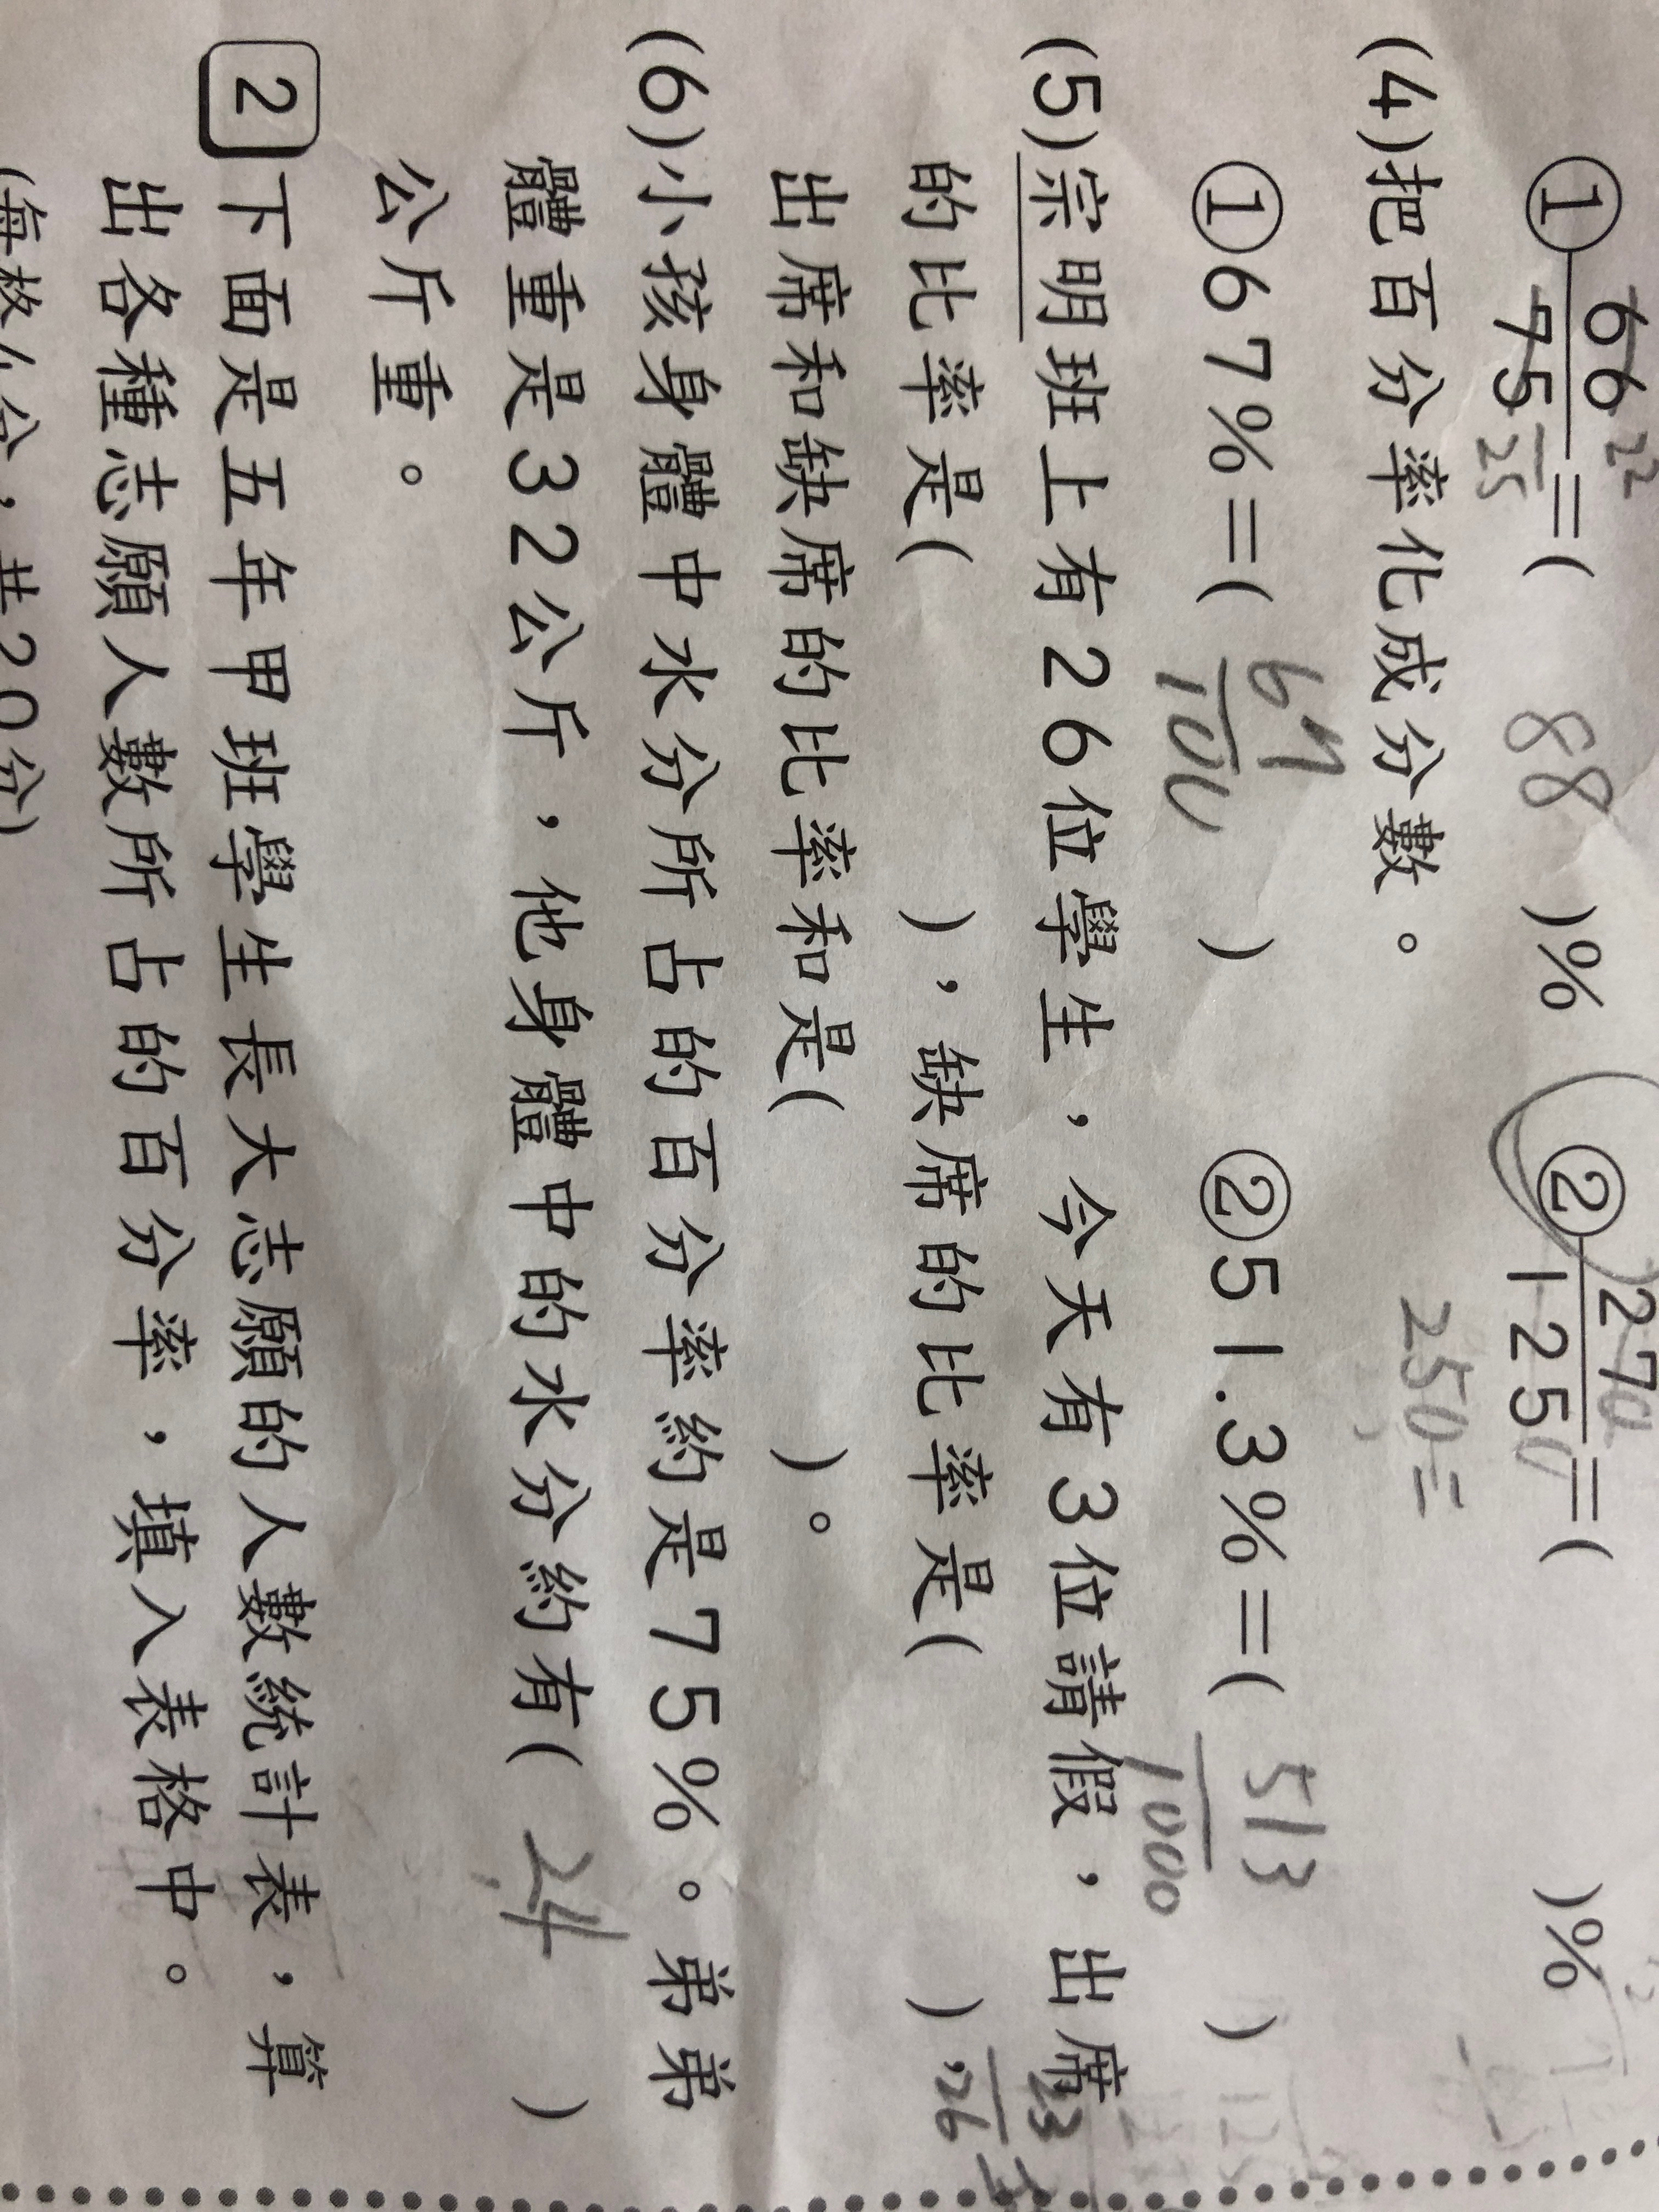 ① 66/75 = ( 88 )% ② 27/125 = ( )%
22
25
270
1250
250=
(4)把百分率化成分數。
①67%=( 67/100 ) ②51.3%=( 513/1000 )
(5)宗明班上有26位學生，今天有3位請假，出席
的比率是( )，缺席的比率是( )，
23
26
出席和缺席的比率和是( )。
(6)小孩身體中水分所占的百分率約是75%。弟弟
體重是32公斤，他身體中的水分約有( 24 )
公斤重。
2 下面是五年甲班學生長大志願的人數統計表，算
出各種志願人數所占的百分率，填入表格中。
(每格4分，共20分)